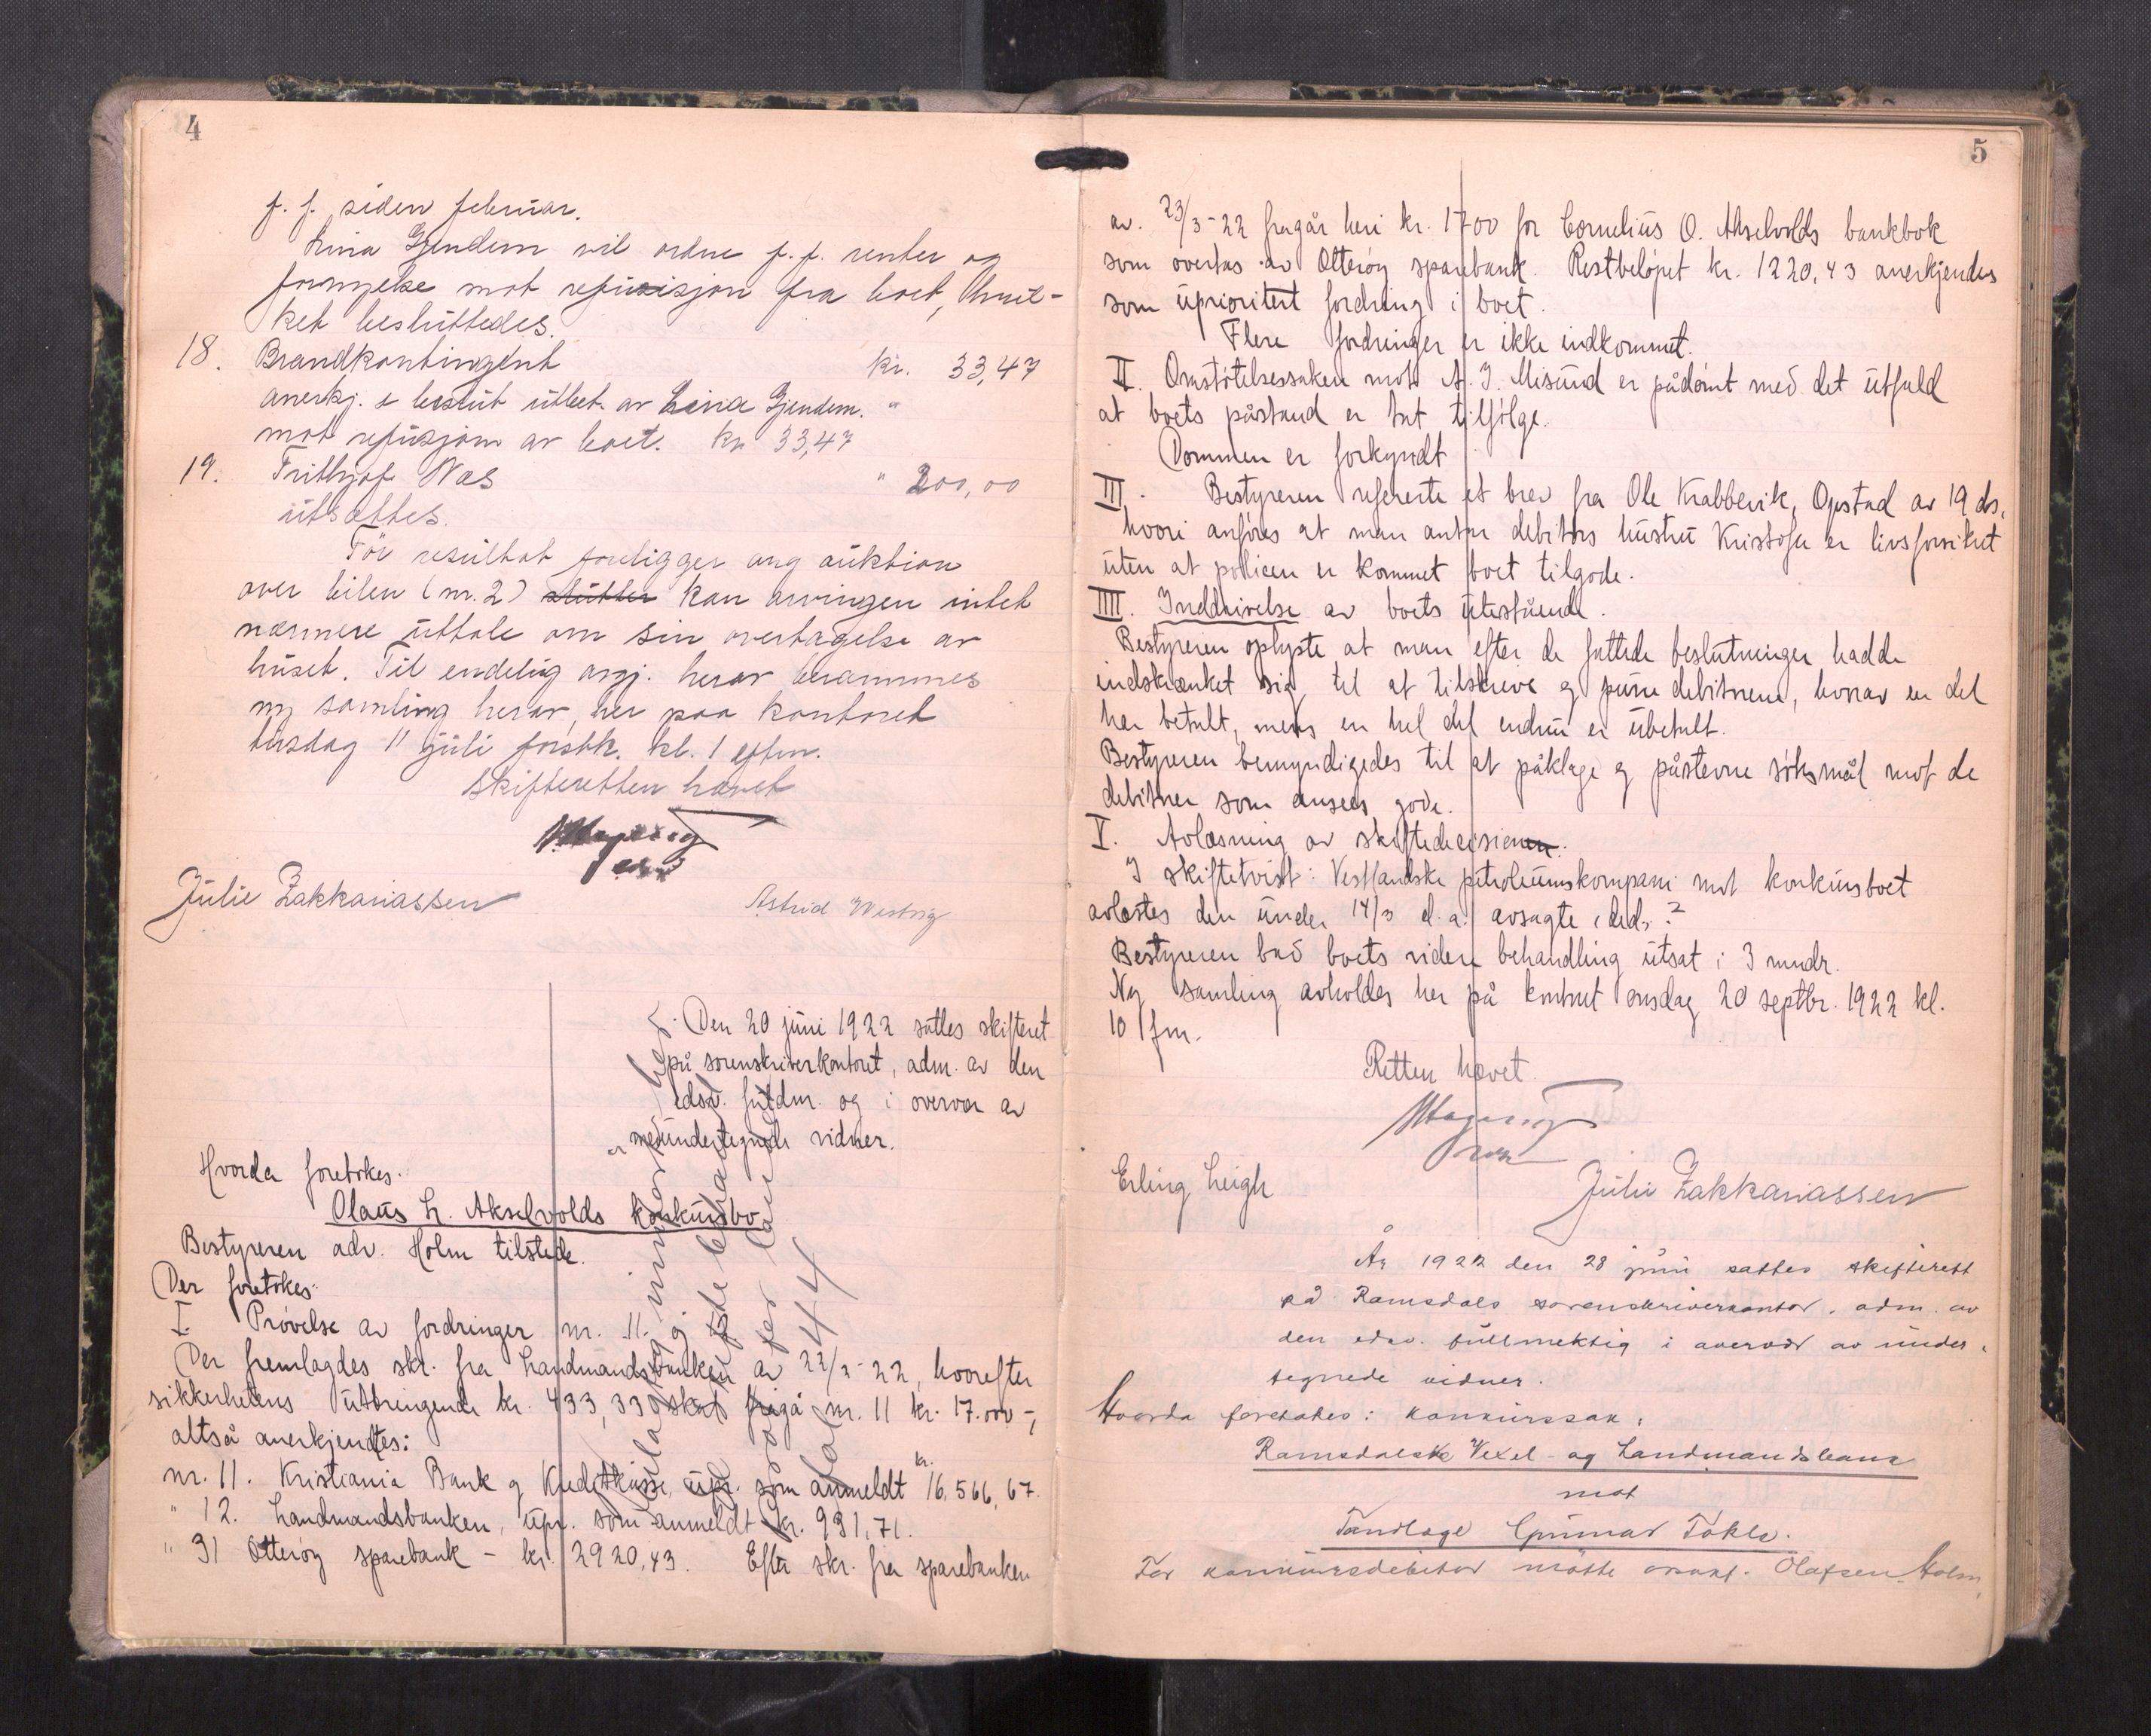 4
f. f. siden februar.
Lina Gjendem vil ordne f. f. renter og
fornyelse mot refusisjon fra boet, hvil-
ket besluttedes.
18. Brandkontingent kr. 33,47
anerkj. & beslut utbet. av Lina Gjendem. "
mot refusjon av boet. kr 33,47
19. Frithjof Næs " 200,00
utsattes.
Før resultat foreligger ang auktion
over bilen (nr. 2) kan arvingen intet
nærmere uttale om sin overtagelse av
huset. Til endelig avgj. herav berammes
ny samling herav, her paa kontoret
tirsdag 11 juli førstk. kl. 1 eftm.
Skifteretten hævet
Julie Zakkariassen Astrid
Den 20 juni 1922 sattes skifteret
på sorenskriverkontoret, adm. av den
edsv. fuldm. og i overvær av
medundertegnede vidner.
Hvorda foretokes:
Olaus L. Akselvolds konkursbo
Bestyreren adv. Holm tilstede.
Der foretokes:
I. Prøvelse av fordringer nr. 11.
Der fremlagdes skr. fra Landmandsbanken av 22/3-22, hvorefter
sikkerhetens utbringende kr. 433,33 skal fragå nr. 11 kr. 17.000-,
altså anerkjendtes:
nr. 11. Kristiania Bank og Kreditkasse, upr. som anmeldt kr. 16.566,67.
" 12. Landmandsbanken, upr. som anmeldt kr. 931,71.
" 31 Otterøy sparebank - kr. 2920,43. Efter skr. fra sparebanken
5
av. 23/3-22 fragår heri kr. 1700 for Cornelius O. Akselvolds bankbok
som overtas av Otterøy sparebank. Restbeløpet kr. 1220,43 anerkjendes
som uprioritert fordring i boet.
Flere fordringer er ikke indkommet.
II. Omstøtelsessaken mot A. J. Misund er pådømt med det utfald
at boets påstand er tat tilfølge.
Dommen er forkyndt
III. Bestyreren refererte et brev fra Ole Krabbevik, Opstad av 19 ds.
hvori anføres at man antar debitors hustru Kristofa er livsforsikret
uten at policen er kommet boet tilgode.
IIII. Inddrivelse av boets utestående.
Bestyreren oplyste at man efter de fattede beslutninger hadde
indskrænket sig til at tilskrive og purre debitorene, hvorav en del
har betalt, mens en hel del endnu er ubetalt.
Bestyreren bemyndigedes til at påklage og påstevne søksmål mot de
debitorer som ansees gode.
V. Avlæsning av skiftedecisionen.
I skiftetvist: Vestlandske petroleumskompani mot konkursboet
avlæstes den under 14/3 d. a. avsagte ded. ?
Bestyreren bad boets videre behandling utsat i 3 mndr.
Ny samling avholdes her på kontoret onsdag 20 septbr. 1922 kl.
10 fm.
Retten hævet
Erling Leigh Julie Zakkariassen
År 1922 den 28 juni sattes skifterett
på Romsdals sorenskriverkontor, adm. av
den edsv. fullmektig i overvær av under-
tegnede vidner.
Hvorda foretokes: Konkurssak:
Romsdalske Vexel- og Landmandsbank
mot
Tandlæge Gunnar Tokle.
For konkursdebitor møtte o.r.sakf. Olafsen Holm,